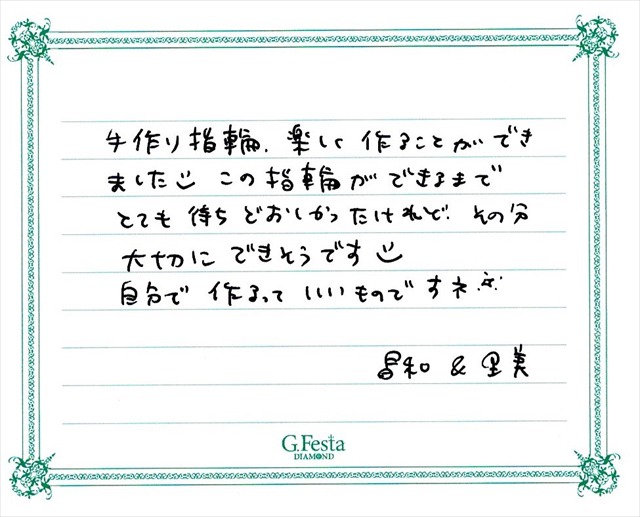 手作り指輪、楽しく作ることができ
ました この指輪ができるまで
とても待ちどおしかったけれど、その分
大切にできそうです
自分で作るっていいものですネ
昌和 & 里美
G.Festa
DIAMOND